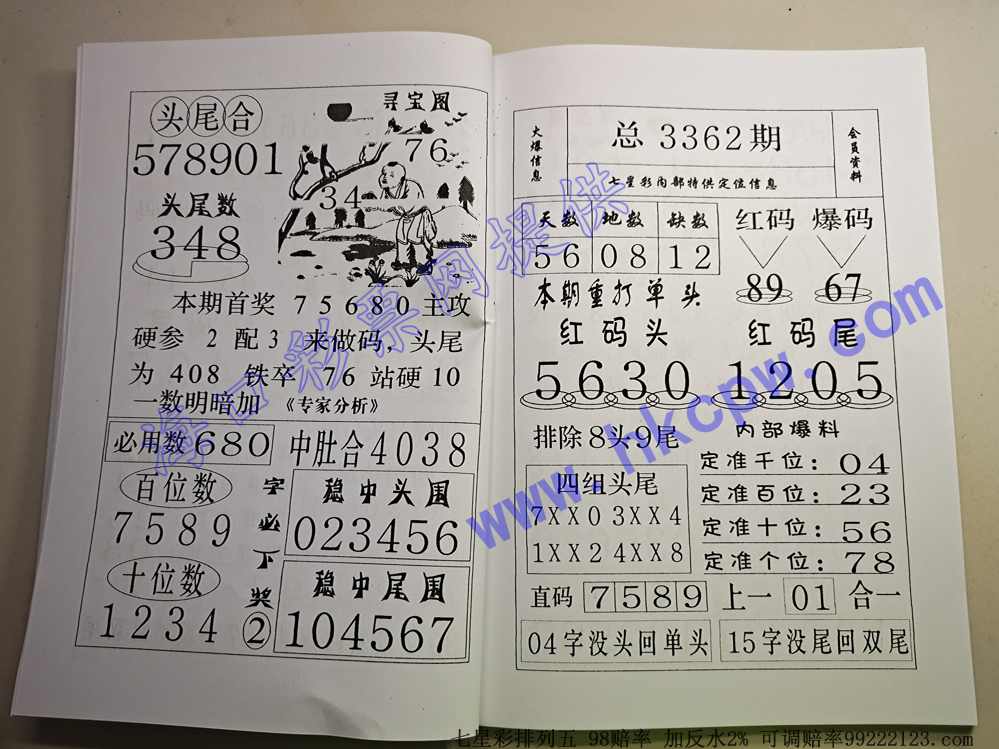 头尾合
578901
头尾数
348
寻宝图
76
34
本期首奖 75680主攻
硬参 2 配3 来做码，头尾
为 408 铁卒 76 站硬10
一数明暗加 《专家分析》
必用数680
中肚合4038
百位数
7589
十位数
1234
字必下奖②
稳中头围
023456
稳中尾围
104567
火爆信息
总3362期
七星彩内部特供定位信息
会员资料
天数 地数 缺数
56 08 12
红码 爆码
89 67
本期重打单头
红码头 红码尾
5630 1205
排除8头9尾
四组头尾
7XX0 3XX4
1XX2 4XX8
内部爆料
定准千位：04
定准百位：23
定准十位：56
定准个位：78
直码 7589 上一 01 合一
04字没头回单头
15字没尾回双尾
海口彩票网提供
www.hkcpw.com
七星彩排列五 98赔率 加反水2% 可调赔率99222123.com